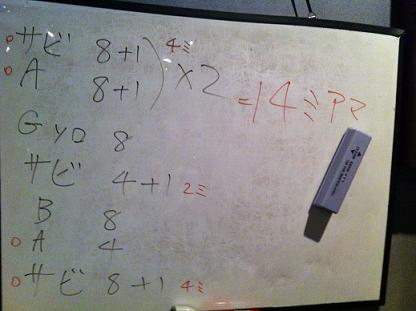 サビ 8+1 4ミ
A 8+1
×2
=14ミ
Gソロ 8
サビ 4+1 2ミ
B 8
A 4
サビ 8+1 4ミ